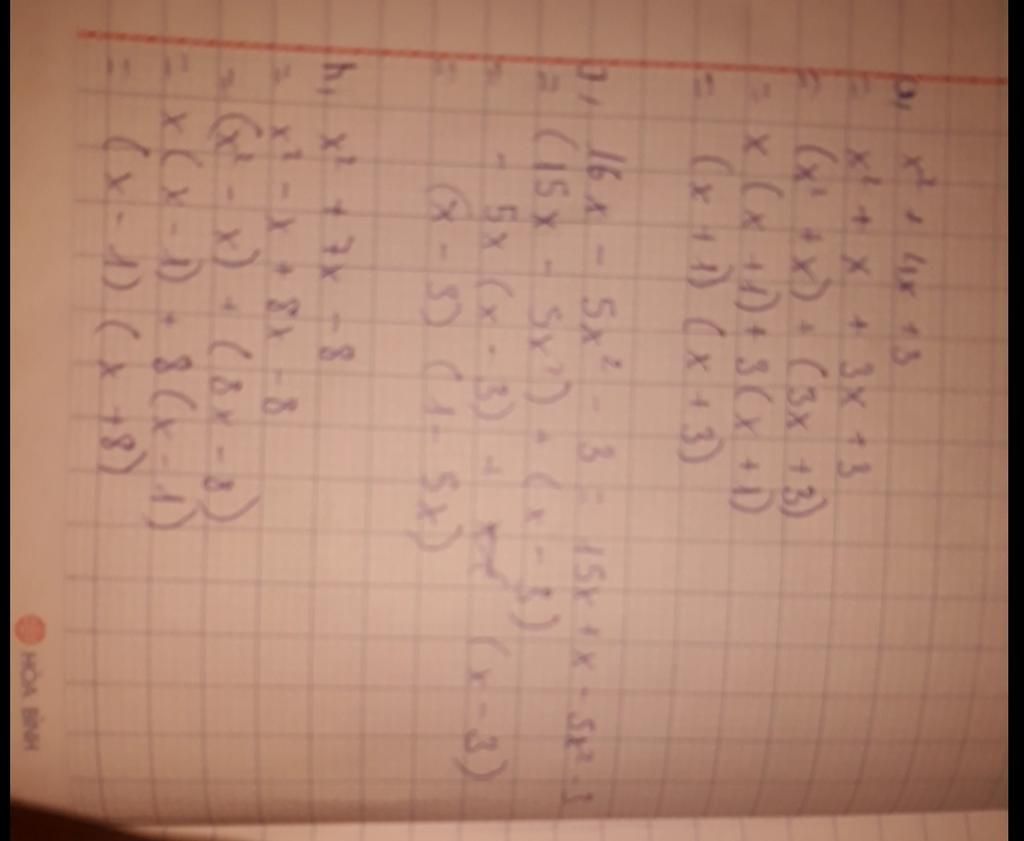 a, x² + 4x + 3
= x² + x + 3x + 3
= (x² + x) + (3x + 3)
= x (x + 1) + 3(x + 1)
= (x + 1) (x + 3)
16x - 5x² - 3 = 15x + x - 5x² - 3
= (15x - 5x²) + (x - 3)
= - 5x (x - 3) + (x - 3)
= (x - 3) (1 - 5x)
h, x² + 7x - 8
= x² - x + 8x - 8
= (x² - x) + (8x - 8)
= x (x - 1) + 8(x - 1)
= (x - 1) (x + 8)
HÒA BÌNH